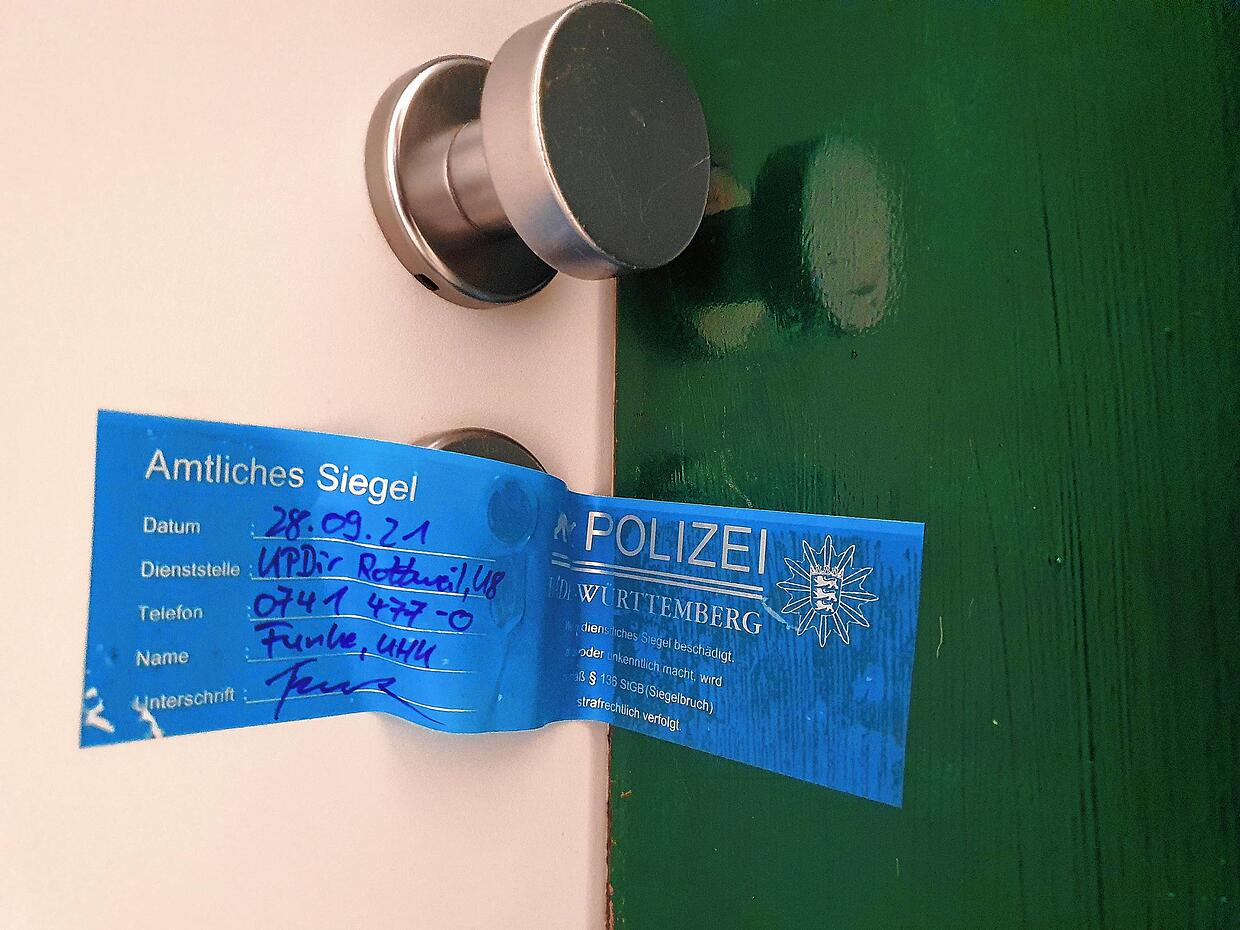 Amtliches Siegel
Datum : 28.09.21
Dienststelle : KPDir Rottweil, K8
Telefon : 0741 477-0
Name Funke, KHK
Unterschrift :
POLIZEI
WÜRTTEMBERG
dienstliches Siegel beschädigt,
oder unkenntlich macht, wird
§ 136 StGB (Siegelbruch)
strafrechtlich verfolgt.